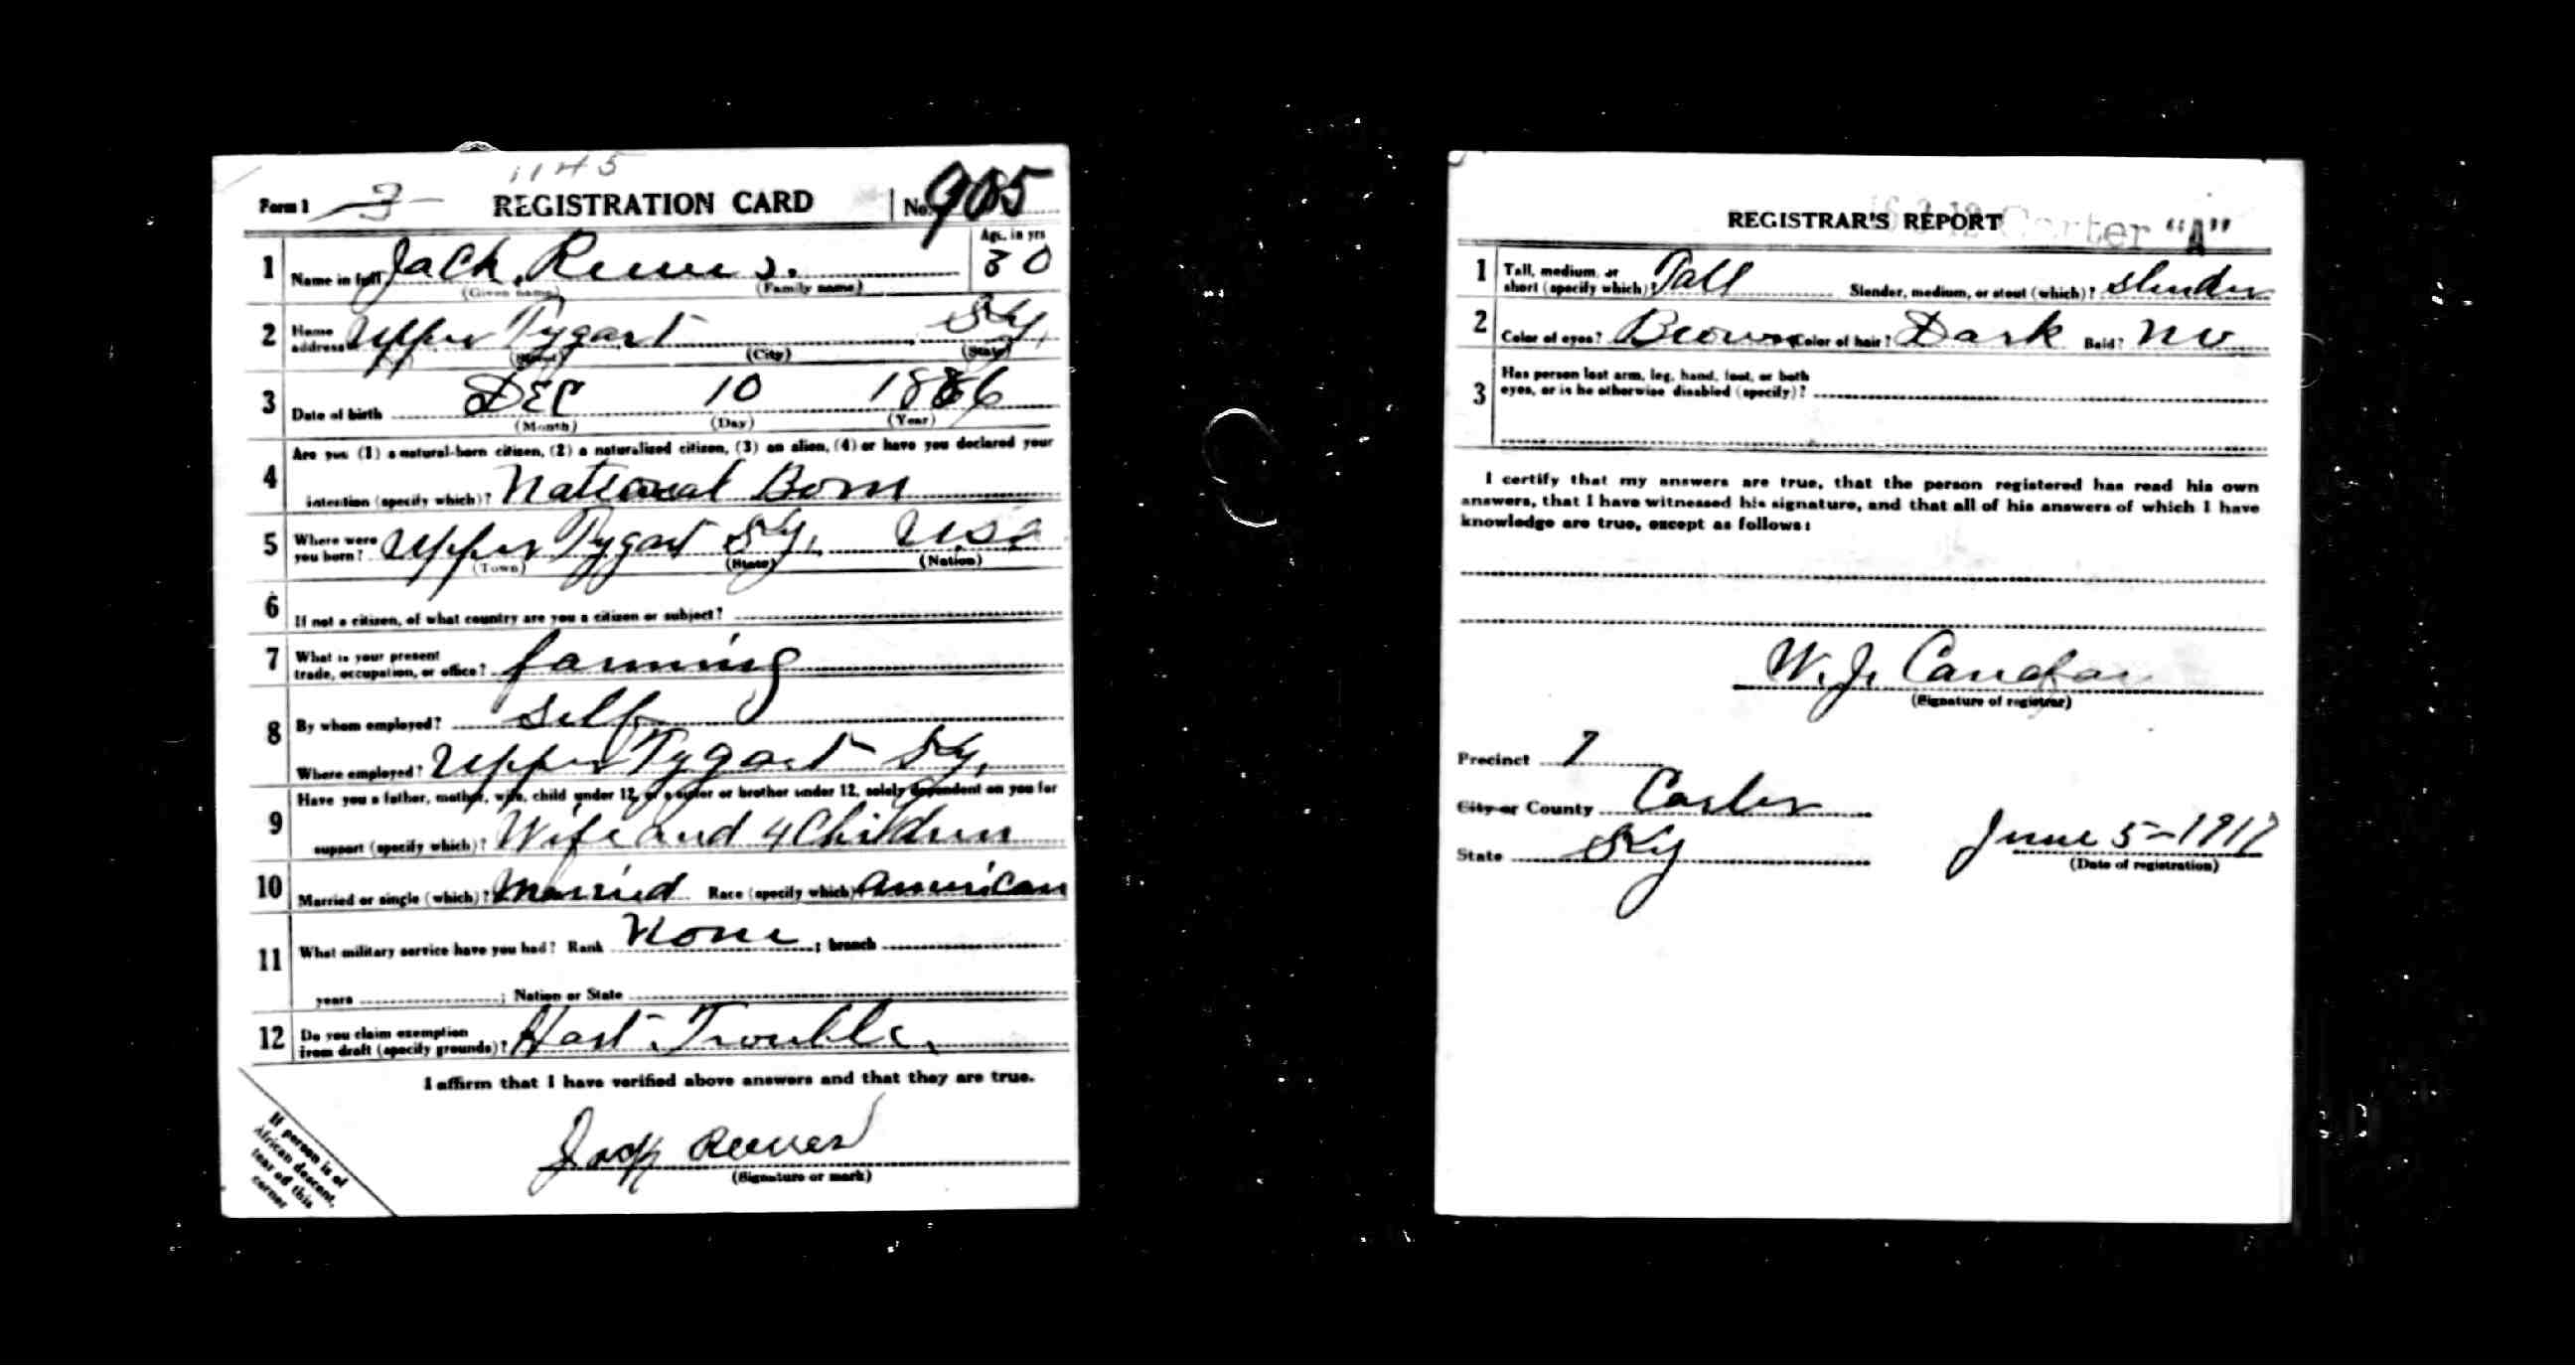 1145
Form 1 3 REGISTRATION CARD No. 905
Age, in yrs
1 Name in full Jack Reeves. 30
(Given name) (Family name)
2 Home address Upper Tygart Ky,
(Street) (City) (State)
3 Date of birth Dec 10 1886
(Month) (Day) (Year)
4 Are you (1) a natural-born citizen, (2) a naturalized citizen, (3) an alien, (4) or have you declared your
intention (specify which)? National Born
5 Where were you born? Upper Tygart Ky, USA
(Town) (State) (Nation)
6 If not a citizen, of what country are you a citizen or subject?
7 What is your present trade, occupation, or office? farming
8 By whom employed? Self
Where employed? Upper Tygart Ky,
9 Have you a father, mother, wife, child under 12, or a sister or brother under 12, solely dependent on you for
support (specify which)? Wife and 4 Children
10 Married or single (which)? Married Race (specify which) American
11 What military service have you had? Rank None ; branch
years ; Nation or State
12 Do you claim exemption from draft (specify grounds)? Hart Trouble.
I affirm that I have verified above answers and that they are true.
Jack Reeves
(Signature or mark)
If person is of
African descent,
tear off this
corner
Carter "A"
REGISTRAR'S REPORT
1 Tall, medium, or short (specify which)? Tall Slender, medium, or stout (which)? slender
2 Color of eyes? Brown Color of hair? Dark Bald? no
3 Has person lost arm, leg, hand, foot, or both
eyes, or is he otherwise disabled (specify)?
I certify that my answers are true, that the person registered has read his own
answers, that I have witnessed his signature, and that all of his answers of which I have
knowledge are true, except as follows:
W. J.
(Signature of registrar)
Precinct 7
City or County Carter
State Ky June 5-1917
(Date of registration)